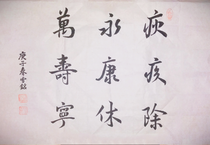 疢疾除
永康休
萬壽寧
庚子春